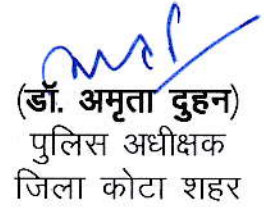 (डॉ. अमृता दुहन)
पुलिस अधीक्षक
जिला कोटा शहर